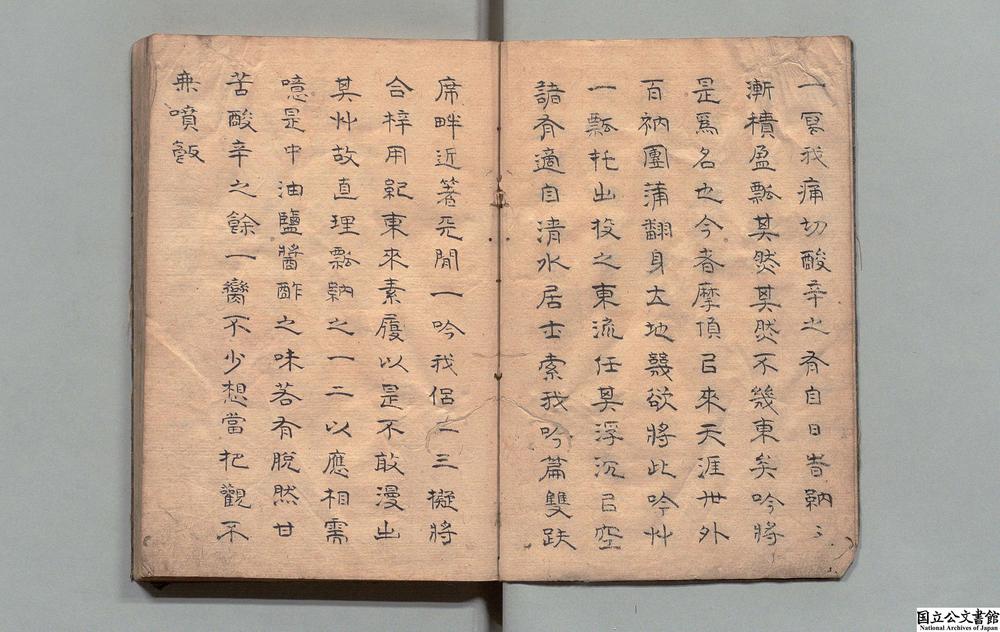 一冥我痛切酸辛之有自日昔納〻
漸積盈瓢其然其然不幾東矣吟將
是爲名也今者摩頂㠯來天涯世外
百衲團蒲翻身大地幾欲將此吟艸
一瓢托出投之東流任其浮沉㠯空
諸有適自清水居士索我吟篇雙趺
席畔近著死閒一吟我侶二三擬將
合梓用紀東來素履以是不敢漫出
其艸故直理瓢納之一二以應相需
噫是中油鹽醬酢之味若有脫然甘
苦酸辛之餘一臠不少想當把觀不
無噴飯
国立公文書館
National Archives of Japan